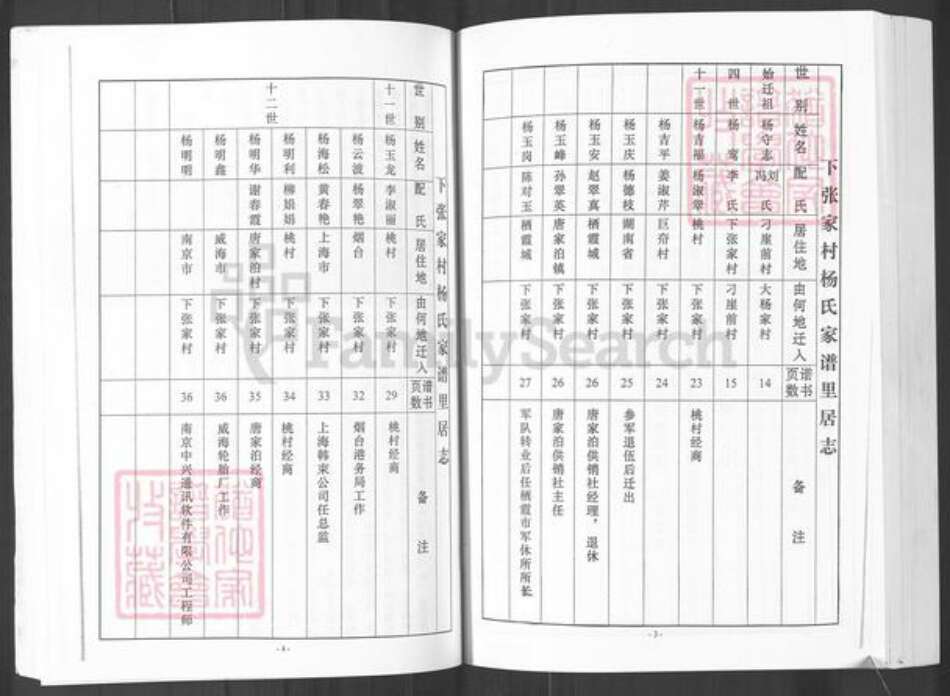 下张家村杨氏家谱里居志
世别 姓名 配氏 居住地 由何地迁入 谱书页数 备注
始迁祖 杨守志 刘氏 冯氏 刁崖前村 大杨家村 14
四世 杨鸾 李氏 下张家村 刁崖前村 15
十一世 杨吉福 杨淑翠 桃村 下张家村 23 桃村经商
杨吉平 姜淑芹 巨夼村 下张家村 24
杨玉庆 杨德枝 湖南省 下张家村 25 参军退伍后迁出
杨玉安 赵翠真 栖霞城 下张家村 26 唐家泊供销社经理，退休
杨玉峰 孙翠英 唐家泊镇 下张家村 26 唐家泊供销社主任
杨玉岗 陈对玉 栖霞城 下张家村 27 军队转业后任栖霞市军休所所长
-3-
下张家村杨氏家谱里居志
世别 姓名 配氏 居住地 由何地迁入 谱书页数 备注
十一世 杨玉龙 李淑丽 桃村 下张家村 29 桃村经商
十二世 杨云波 杨翠艳 烟台 下张家村 32 烟台港务局工作
杨海松 黄春艳 上海市 下张家村 33 上海韩束公司任总监
杨明利 柳娟娟 桃村 下张家村 34 桃村经商
杨明华 谢春霞 唐家泊村 下张家村 35 唐家泊经商
杨明鑫 威海市 下张家村 36 威海轮胎厂工作
杨明明 南京市 下张家村 36 南京中兴通讯软件有限公司工程师
-4-
FamilySearch